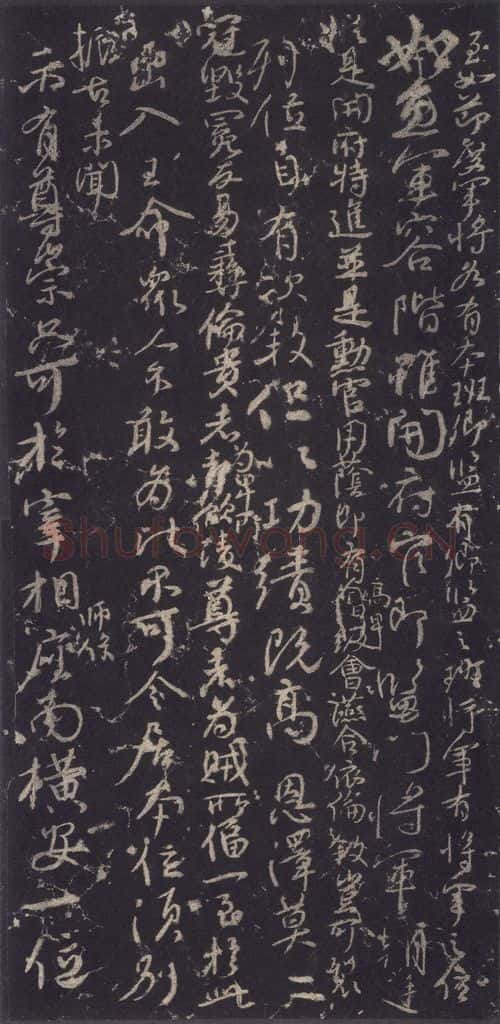 至如節度軍將各有本班卿監有卿監之班將軍有將軍之位
如魚軍容階雖開府官即監門將軍朝廷
縱是開府特進並是勳官用蔭即有高卑會讌合依倫敘豈可裂
列位自有次敘但以功績既高恩澤莫二
冠毀冕反易彝倫貴者為卑所凌尊者為賊所偪一至於此
出入王命眾人不敢為比不可令居本位須別
振古未聞
示有尊崇只可於宰相師保座南橫安一位
Shufawang.CN